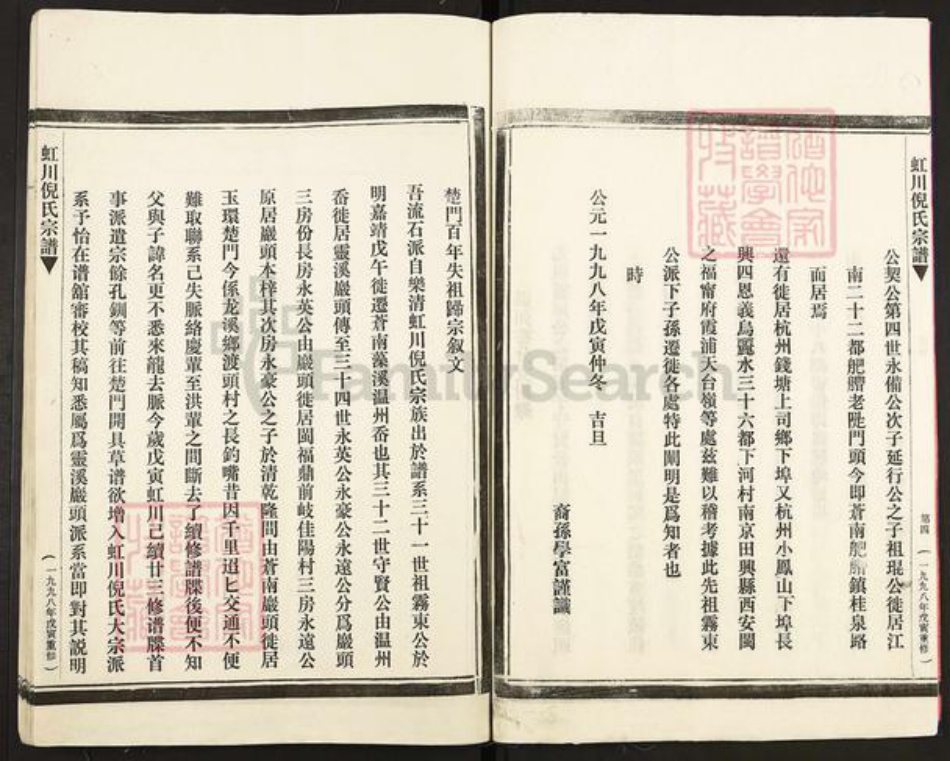 虹川倪氏宗譜
公契公第四世永備公次子延行公之子祖琨公徙居江
南二十二都舥艚老陡門頭今即蒼南舥艚鎮桂泉路
而居焉
還有徙居杭州錢塘上司鄉下埠又杭州小鳳山下埠長
興四恩義烏麗水三十六都下河村南京田興縣西安閩
之福甯府霞浦天台嶺等處茲難以稽考據此先祖霧東
公派下子孫遷徙各處特此闡明是爲知者也
時
公元一九九八年戊寅仲冬 吉旦
裔孫學富謹識
第四
(一九九八年戊寅重修)
楚門百年失祖歸宗叙文
吾流石派自樂清虹川倪氏宗族出於譜系三十一世祖霧東公於
明嘉靖戊午徙遷蒼南藻溪温州岙也其三十二世守賢公由温州
岙徙居靈溪巖頭傳至三十四世永英公永豪公永遠公分爲巖頭
三房份長房永英公由巖頭徙居閩福鼎前岐佳陽村三房永遠公
原居巖頭本梓其次房永豪公之子於清乾隆間由蒼南巖頭徙居
玉環楚門今係龙溪鄉渡頭村之長釣嘴昔因千里迢匕交通不便
難取聯系己失脈絡慶輩至洪輩之間斷去了續修譜牒後便不知
父與子諱名更不悉來龍去脈今歲戊寅虹川己續廿三修谱牒首
事派遣宗餘孔釧等前往楚門開具草谱欲增入虹川倪氏大宗派
系予恰在谱舘審校其稿知悉屬爲靈溪巖頭派系當即對其説明
虹川倪氏宗譜
(一九九八年戊寅重修)
FamilySearch